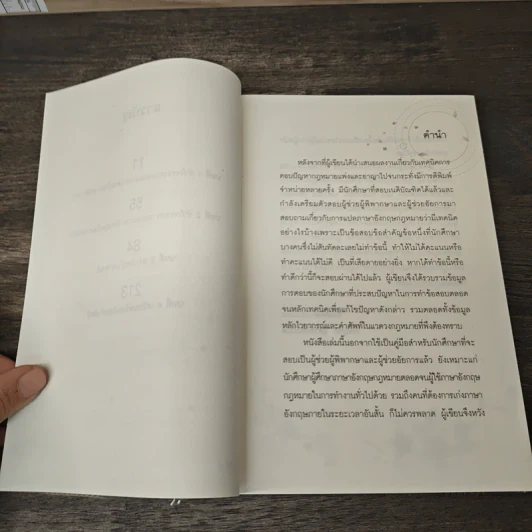 คำนำ
หลังจากที่ผู้เขียนได้นำเสนอผลงานเกี่ยวกับเทคนิคการ
ตอบปัญหากฎหมายแพ่งและอาญาไปจนกระทั่งมีการตีพิมพ์
จำหน่ายหลายครั้ง มีนักศึกษาที่สอบเนติบัณฑิตได้แล้วและ
กำลังเตรียมตัวสอบผู้ช่วยผู้พิพากษาและผู้ช่วยอัยการมา
สอบถามเกี่ยวกับการแปลภาษาอังกฤษกฎหมายว่ามีเทคนิค
อย่างไรบ้างเพราะเป็นข้อสอบข้อสำคัญข้อหนึ่งที่นักศึกษา
บางคนซึ่งไม่สันทัดอะเลยไม่ทำข้อนี้ ทำให้ไม่ได้คะแนนหรือ
ทำคะแนนได้ไม่ดี เป็นที่เสียดายอย่างยิ่ง หากได้ทำข้อนี้หรือ
ทำดีกว่านี้ก็จะสอบผ่านได้ไปแล้ว ผู้เขียนจึงได้รวบรวมข้อมูล
การตอบของนักศึกษาที่ประสบปัญหาในการทำข้อสอบตลอด
จนหลักเทคนิคเพื่อแก้ไขปัญหาดังกล่าว รวมตลอดทั้งข้อมูล
หลักไวยากรณ์และคำศัพท์ในแวดวงกฎหมายที่พึงต้องทราบ
หนังสือเล่มนี้นอกจากใช้เป็นคู่มือสำหรับนักศึกษาที่จะ
สอบเป็นผู้ช่วยผู้พิพากษาและผู้ช่วยอัยการแล้ว ยังเหมาะแก่
นักศึกษาผู้ศึกษาภาษาอังกฤษกฎหมายตลอดจนผู้ใช้ภาษาอังกฤษ
กฎหมายในการทำงานทั่วไปด้วย รวมถึงคนที่ต้องการเก่งภาษา
อังกฤษภายในระยะเวลาอันสั้น ก็ไม่ควรพลาด ผู้เขียนจึงหวัง